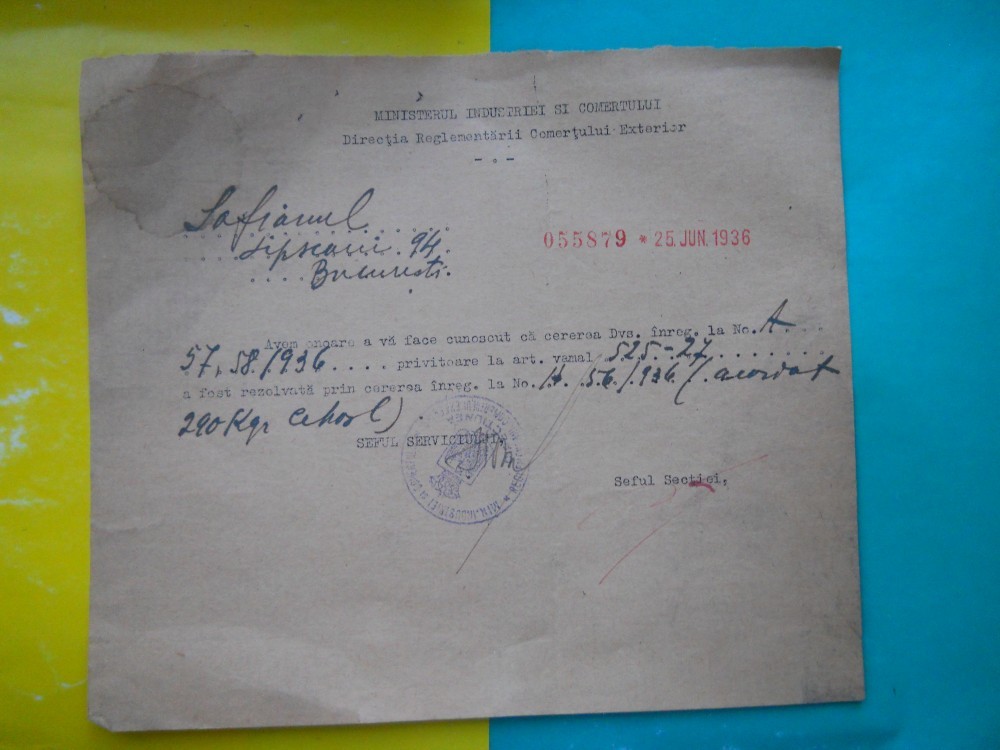 MINISTERUL INDUSTRIEI SI COMERTULUI
Direcţia Reglementării Comerţului Exterior
- o -
Safianul
Lipscani 94.
Bucureşti.
055879 * 25. JUN. 1936
Avem onoare a vă face cunoscut că cererea Dvs. înreg. la No. A
57,58/1936 .... privitoare la art. vamal 525-27
a fost rezolvată prin cererea înreg. la No. 1936 (acordat
290 Kgr )
SEFUL SERVICIULUI,
Seful Secţiei,